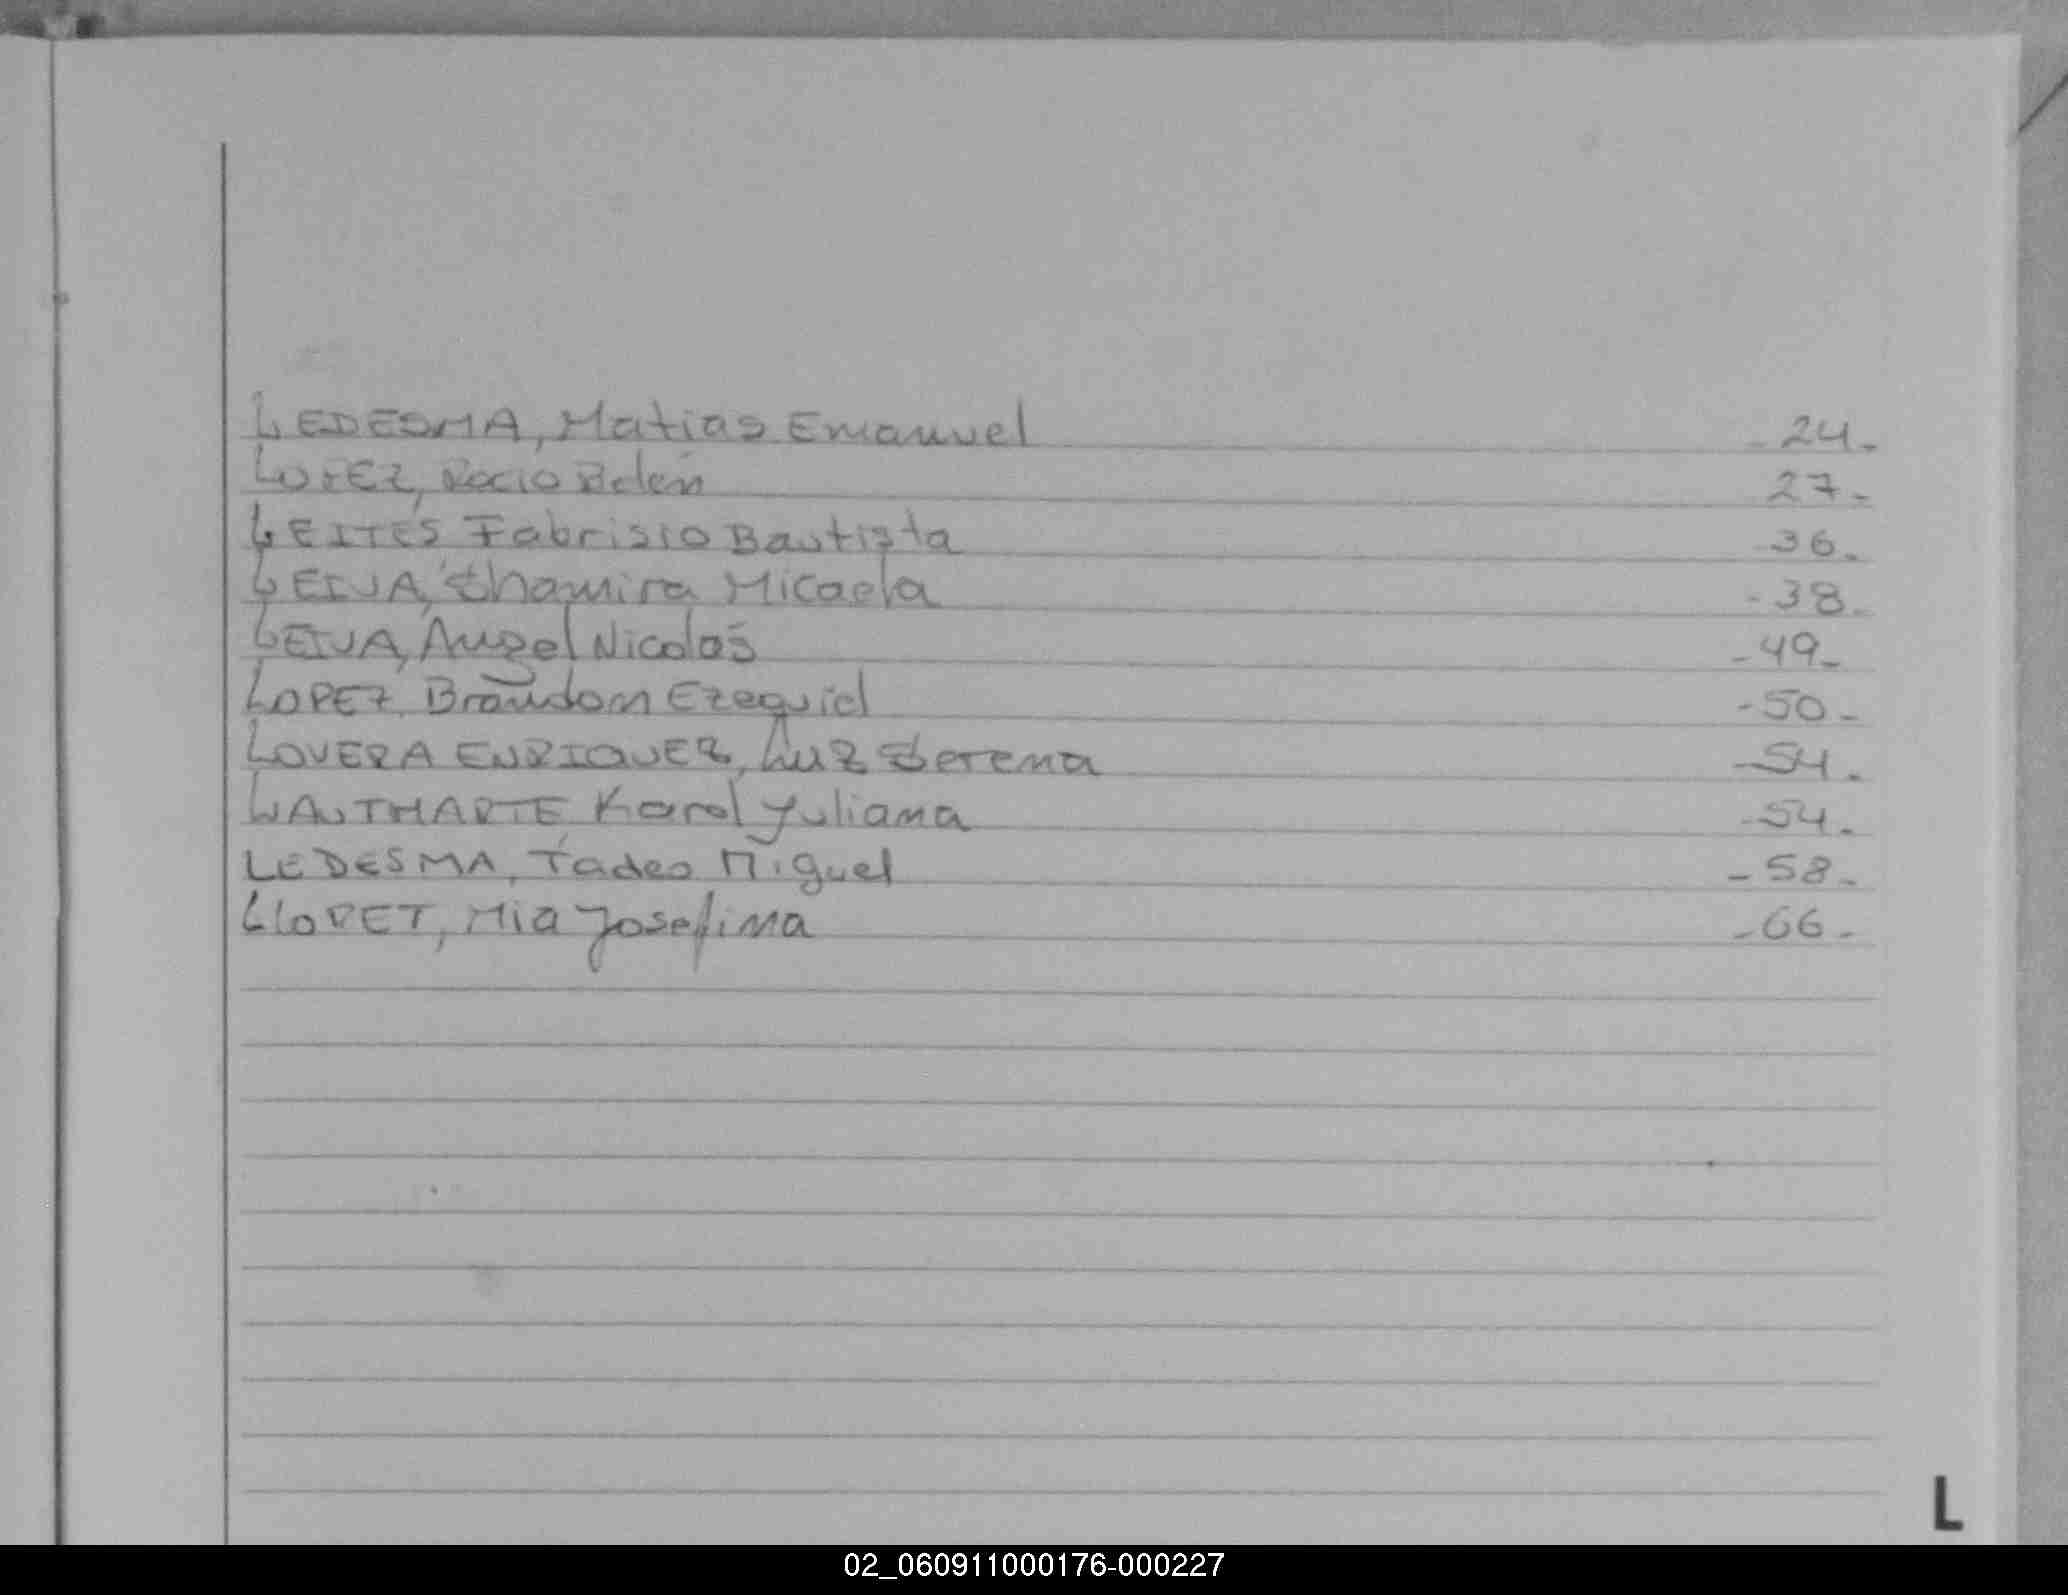 LEDESMA, Matias Emanuel -24-
LOPEZ, Rocio Belén 27-
LEITES Fabrisio Bautista -36-
LEIVA, Shamira Micaela -38-
LEIVA, Angel Nicolás -49-
LOPEZ, Brandon Ezequiel -50-
LOVERA ENRIQUEZ, Luz Serena -54-
Karol Yuliana -54-
LEDESMA, Tadeo Miguel -58-
LLOPET, Mia Josefina -66-
L
02_060911000176-000227